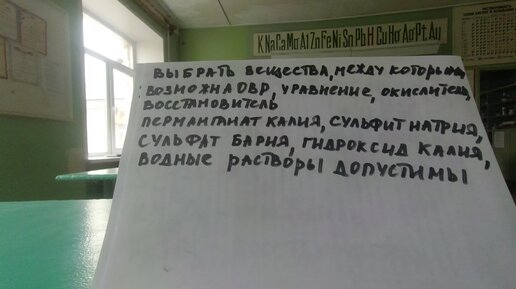 K Na Ca Mg Al Zn Fe Ni Sn Pb H Cu Hg Ag Pt Au
ВЫБРАТЬ ВЕЩЕСТВА, МЕЖДУ КОТОРЫМИ
ВОЗМОЖНА ОВР, УРАВНЕНИЕ, ОКИСЛИТЕЛЬ,
ВОССТАНОВИТЕЛЬ
ПЕРМАНГАНАТ КАЛИЯ, СУЛЬФИТ НАТРИЯ,
СУЛЬФАТ БАРИЯ, ГИДРОКСИД КАЛИЯ,
ВОДНЫЕ РАСТВОРЫ ДОПУСТИМЫ